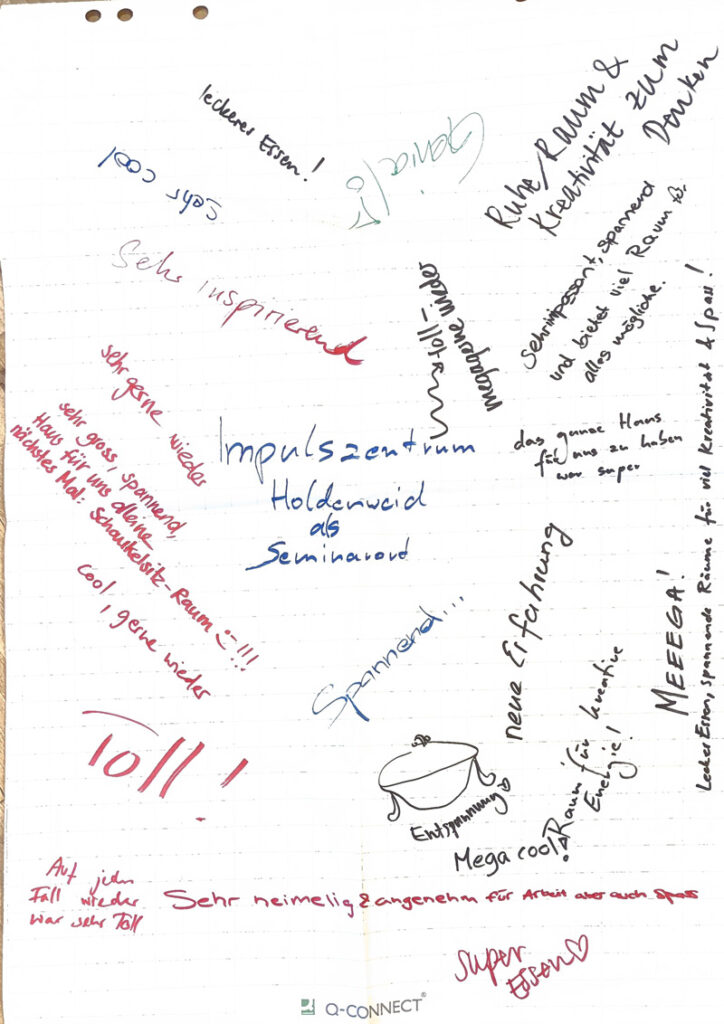 leckeres Essen!
sehr cool
Genial!
Ruhe, Raum &
Kreativität zum
Denken
Sehr inspirierend
toll –
megagerne wieder
Sehr impossant, spannend
und bietet viel Raum für
alles mögliche.
sehr gerne wieder
sehr gross, spannend,
Haus für uns alleine
nächstes Mal: Schaukelsitz-Raum!!!
cool, gerne wieder
Impulszentrum
Holdenweid
als
Seminarort
das ganze Haus
für uns zu haben
war super
Lecker Essen, spannende Räume für viel Kreativität & Spass!
MEEEGA!
neue Erfahrung
Spannend...
Toll!
Entspannung
Raum für kreative
Energie!
Mega cool!
Auf jeden
Fall wieder
war sehr Toll
Sehr heimelig & angenehm für Arbeit aber auch Spass
Super
Essen
Q-CONNECT®